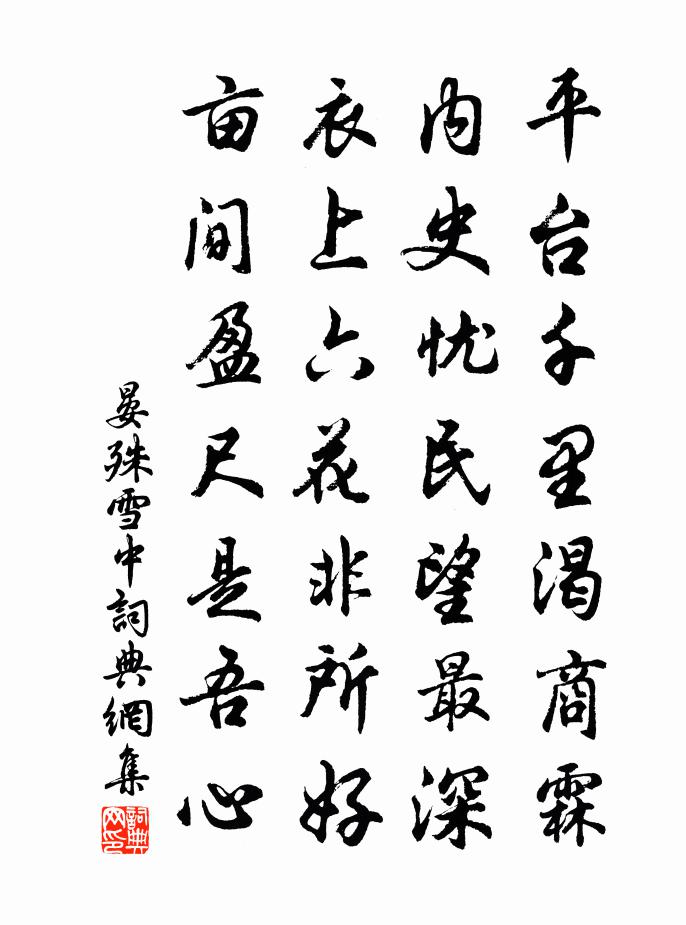 平台千里渴商霖
内史忧民望最深
衣上六花非所好
亩间盈尺是吾心
晏殊雪中詞典網集
詞典网印